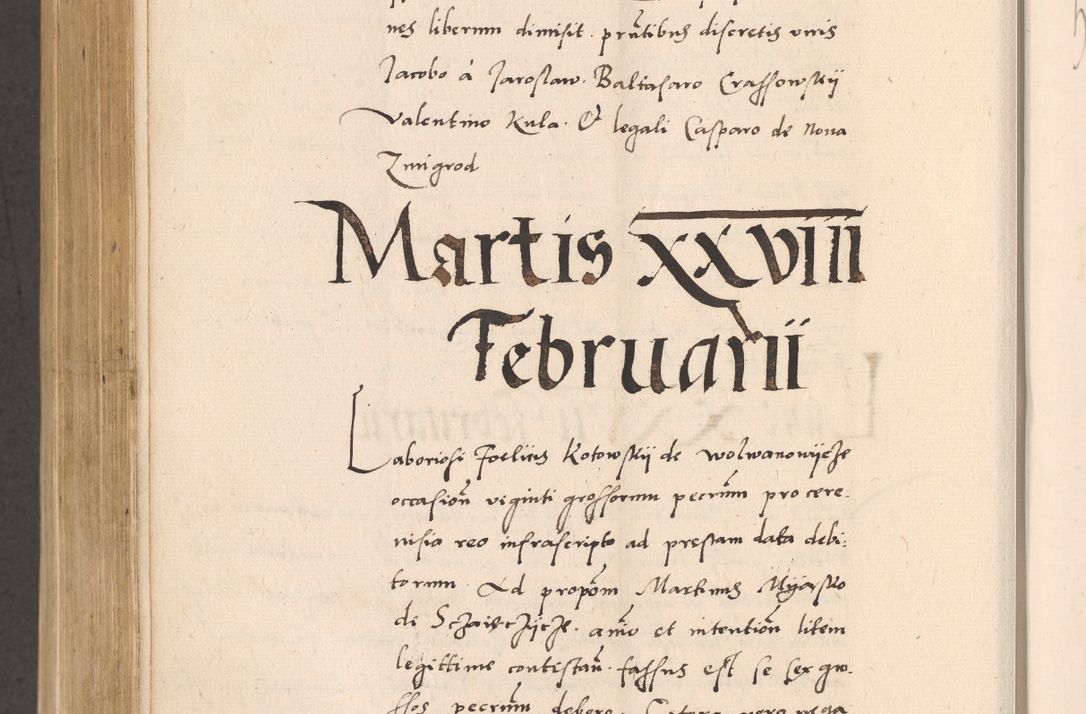 nes liberum dimisit. prntibus discretis viris
Jacobo à Jaroslaw. Baltasaro Crassowskij
Valentino Kula. Et legali Casparo de Noua
Zmigrod
Martis xxviii
Februarii
Laboriosi Foelicis Kotowskij de Wolwanowijcze
occasion viginti grossorum pecrum pro cere-
uisia reo infrascripto ad prestam data debi:
torum. Ad propom Martinus Mijasko
de animo et intention litem
legittime contistan. fassus est se sex gro-
ssos pecrum debere. Cetera vero nega